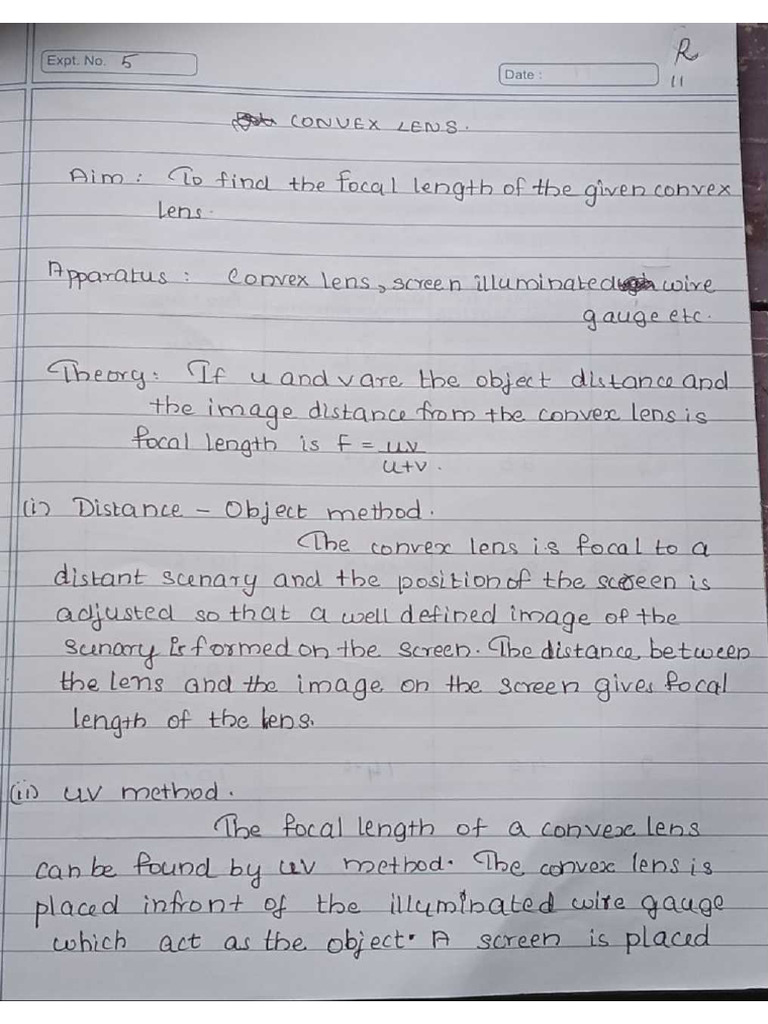 Expt. No. 5
Date :
R
11
CONVEX LENS.
Aim : To find the focal length of the given convex
lens.
Apparatus : Convex lens, screen illuminated wire
gauge etc.
Theory : If u and v are the object distance and
the image distance from the convex lens is
focal length is f = uv
u+v.
(i) Distance - Object method.
The convex lens is focal to a
distant scenary and the position of the screen is
adjusted so that a well defined image of the
scenary is formed on the screen. The distance between
the lens and the image on the screen gives focal
length of the lens.
(ii) uv method.
The focal length of a convex lens
can be found by uv method. The convex lens is
placed infront of the illuminated wire gauge
which act as the object. A screen is placed